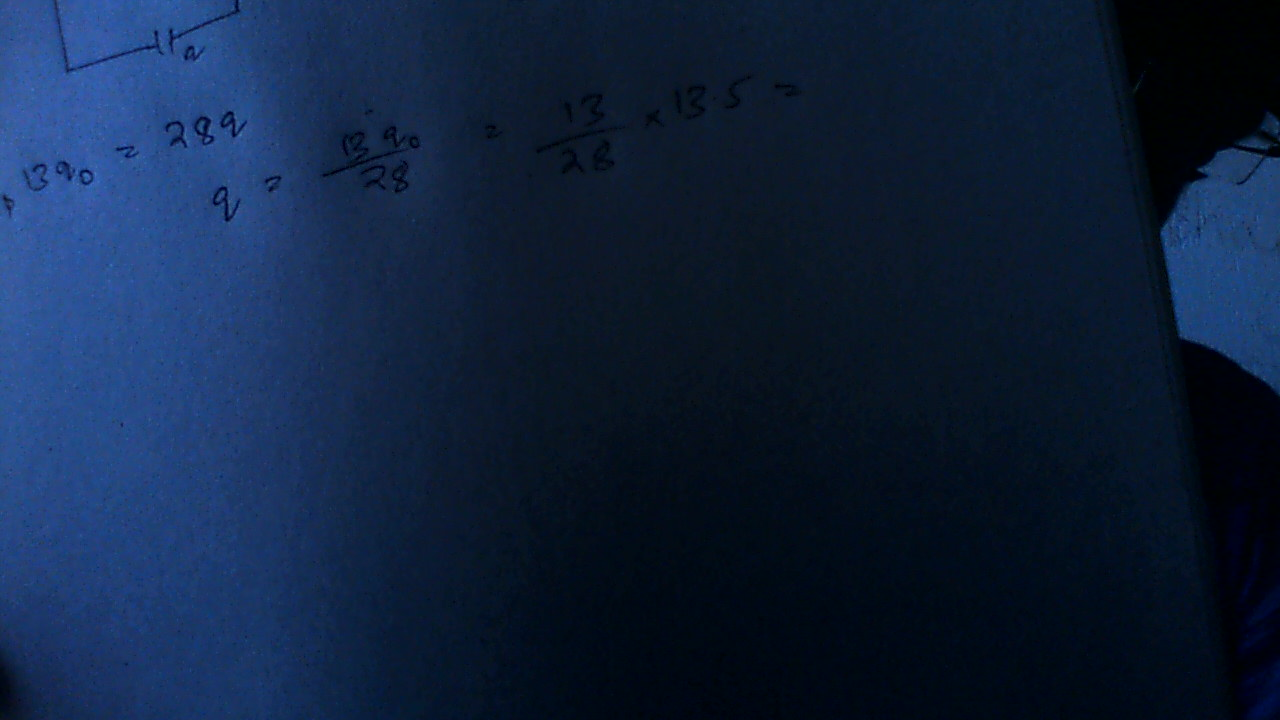 a
13q₀ = 28q
q = 13q₀/28 = 13/28 × 13.5 =